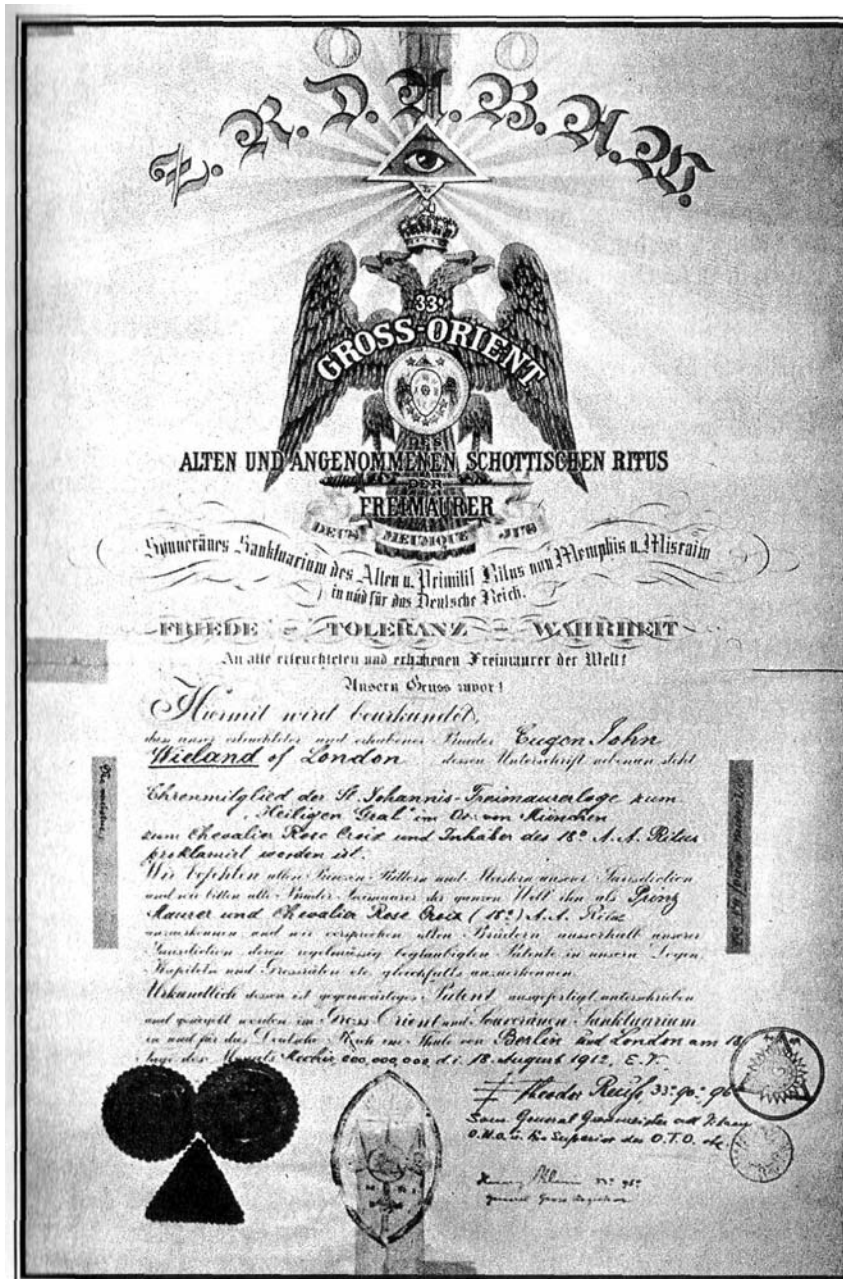 Z. R. D. A. B. A. W.
33º
GROSS-ORIENT
DES
ALTEN UND ANGENOMMENEN SCHOTTISCHEN RITUS
DER
FREIMAURER
DEUS MEUMQUE JUS
Souveränes Sanktuarium des Alten u. Primitif Ritus von Memphis u. Misraim
in und für das Deutsche Reich.
FRIEDE - TOLERANZ - WAHRHEIT
An alle erleuchteten und erhabenen Freimaurer der Welt!
Unsern Gruss zuvor!
Hiermit wird beurkundet,
dass unser erleuchteter und erhabener Bruder Eugen John
Wieland of London dessen Unterschrift nebenan steht
Ehrenmitglied der St. Johannis-Freimaurerloge zum
„Heiligen Gral" im Or. von München
zum Chevalier Rose Croix und Inhaber des 18º A. A. Ritus
proklamirt worden ist.
Wir befehlen allen Prinzen Rittern und Meistern unserer Jurisdiction
und wir bitten alle Brüder Freimaurer der ganzen Welt ihn als Prinz
Maurer und Chevalier Rose Croix (18º) A. A. Ritus
anzuerkennen und wir versprechen allen Brüdern ausserhalb unserer
Jurisdiction deren regelmässig beglaubigten Patente in unsern Logen,
Kapiteln und Grossräten etc. gleichfalls anzuerkennen.
Urkundlich dessen ist gegenwärtiges Patent ausgefertigt unterschrieben
und gesiegelt worden im Gross Orient und Souveränen Sanktuarium
in und für das Deutsche Reich im Thale von Berlin und London am 18
Tage des Monats 000,000,000, d. i. 18. August 1912, E. V.
Theodor Reuss 33º 90º 96º
Souv. General Grossmeister
O.H.O. u. Superior des O.T.O. etc
33º 95º
General Gross